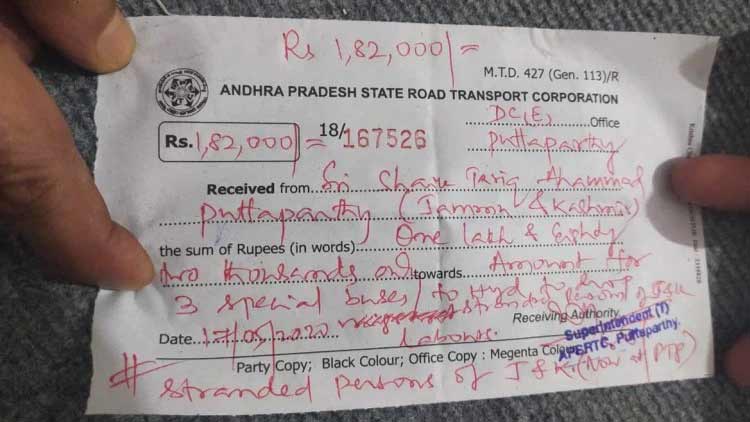 Rs 1,82,000/=
M.T.D. 427 (Gen. 113)/R
ANDHRA PRADESH STATE ROAD TRANSPORT CORPORATION
DC(E) Office
Rs. 1,82,000/= 18/167526 Puttaparthy
Received from Sri Shaik Tariq Ahammad
Puttaparthy (Jammu & Kashmir)
the sum of Rupees (in words) One lakh & Eighty
two thousands only towards Amount for
3 special buses to Hyd to drop
stranded persons of J&K
Receiving Authority
Date 17/05/2020 Labours.
Superintendent (T)
APSRTC, Puttaparthy.
Party Copy; Black Colour; Office Copy : Megenta Colour
# stranded persons of J & K (Now at PTP)